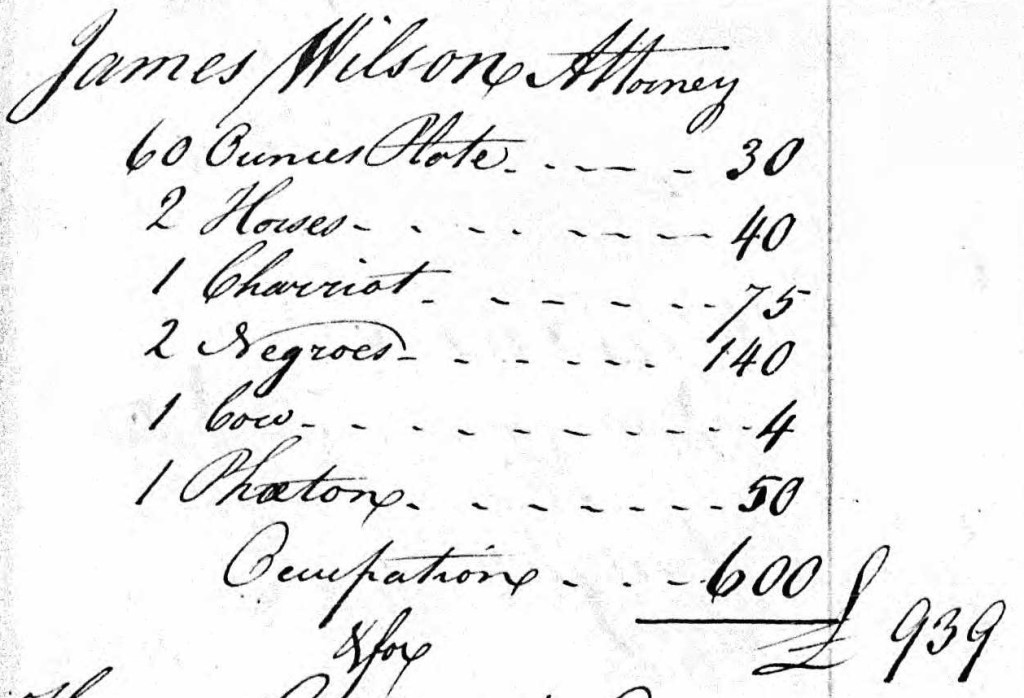 James Wilson Attorney
60 Ounces Plate 30
2 Horses 40
1 Charriot 75
2 Negroes 140
1 Cow 4
1 Phæton 50
Occupation 600
£ 939
&for